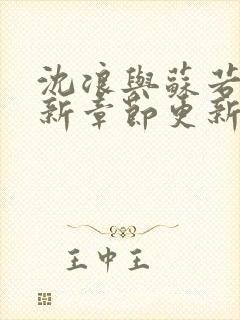 沈浪與蘇若
新章節更新
王中王